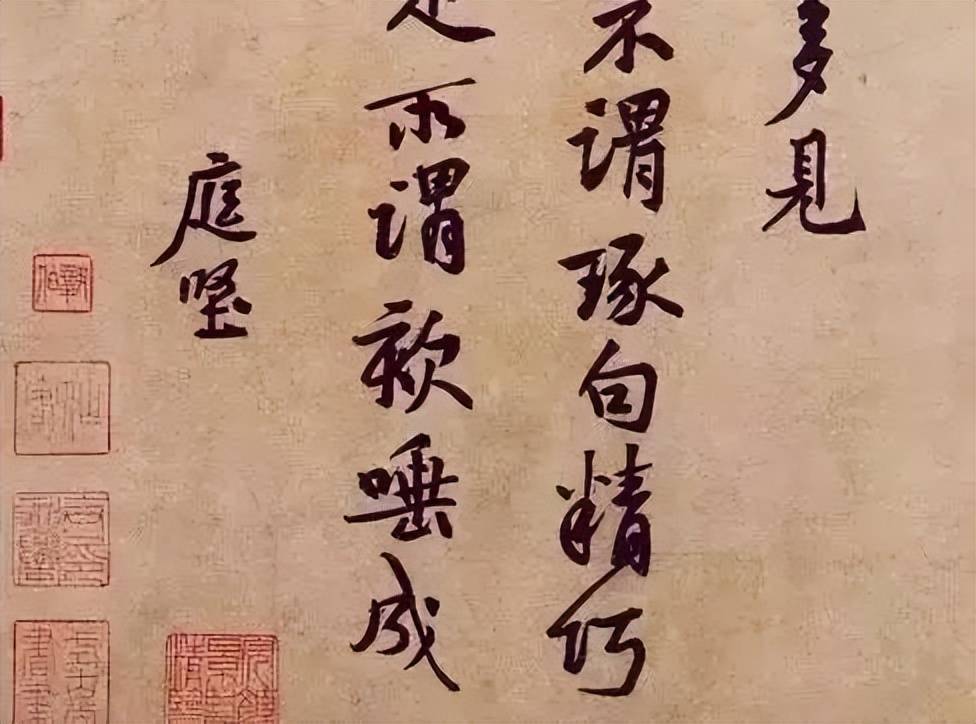 多見
不謂琢句精巧
所謂欬唾成
庭堅